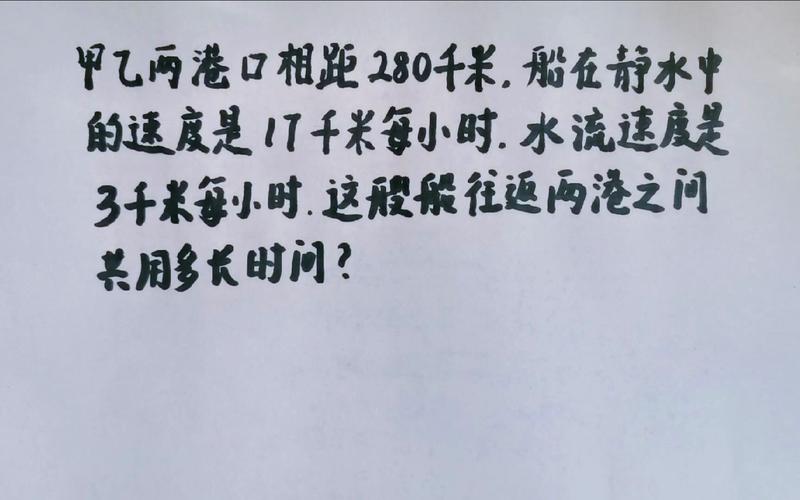 甲乙两港口相距280千米.船在静水中
的速度是17千米每小时.水流速度是
3千米每小时.这艘船往返两港之间
共用多长时间?